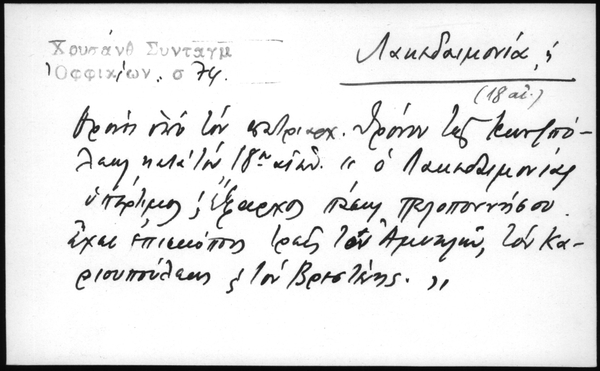 Χρυσάνθ Συνταγμ
Ὀφφικίων, σ 74.
Λακεδαιμονία, ἡ
(18 αἰ.)
θρόνος ὑπό τόν πατριαρχ. θρόνον τῆς Κωνσ)πό-
λεως κατά τόν 18ον αἰῶν. " ὁ Λακεδαιμονίας
ὑπέρτιμος ς Ἔξαρχος πάσης Πελοποννήσου.
ἔχει ἐπισκόπους τρεῖς τόν Ἀμυκλῶν, τόν Κα-
ριουπόλεως ς τόν Βρεσθένης. "